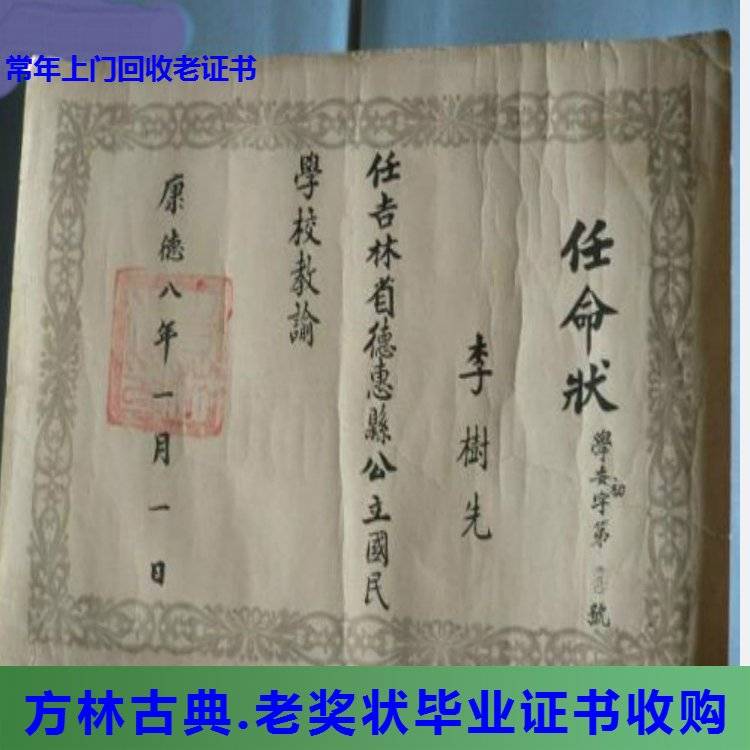 常年上门回收老证书
任命狀
學委字第號
李樹先
任吉林省德惠縣公立國民
學校教諭
康德八年一月一日
方林古典.老奖状毕业证书收购